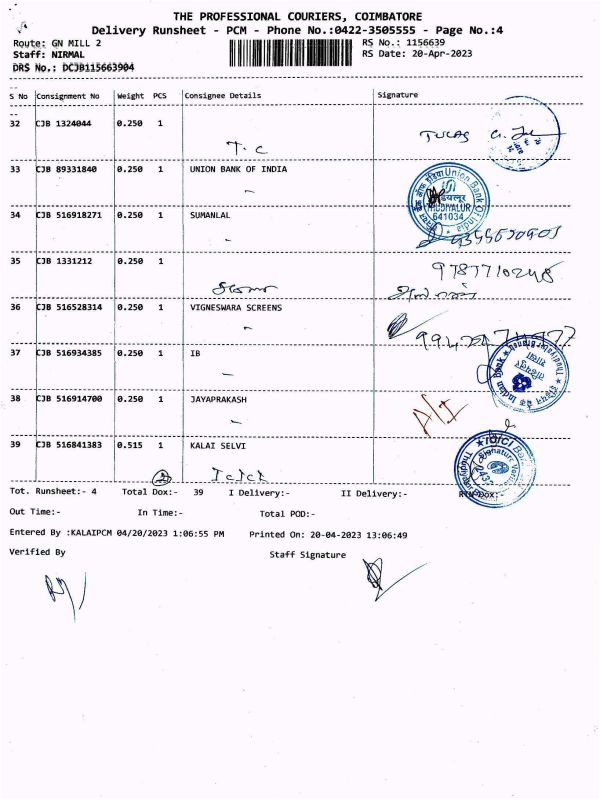 THE PROFESSIONAL COURIERS, COIMBATORE
Delivery Runsheet - PCM - Phone No.:0422-3505555 - Page No.:4
Route: GN MILL 2 RS No.: 1156639
Staff: NIRMAL RS Date: 20-Apr-2023
DRS No.: DCJB115663904
S No Consignment No Weight PCS Consignee Details Signature
32 CJB 1324044 0.250 1
T.C
33 CJB 89331840 0.250 1 UNION BANK OF INDIA
Union Bank Of India
641034
34 CJB 516918271 0.250 1 SUMANLAL
35 CJB 1331212 0.250 1
9787710248
36 CJB 516528314 0.250 1 VIGNESWARA SCREENS
37 CJB 516934385 0.250 1 IB
Indian Bank
38 CJB 516914700 0.250 1 JAYAPRAKASH
39 CJB 516841383 0.515 1 KALAI SELVI
ICICI Bank
2 ICICI
Tot. Runsheet:- 4 Total Dox:- 39 I Delivery:- II Delivery:- RTN Dox:-
Out Time:- In Time:- Total POD:-
Entered By :KALAIPCM 04/20/2023 1:06:55 PM Printed On: 20-04-2023 13:06:49
Verified By Staff Signature